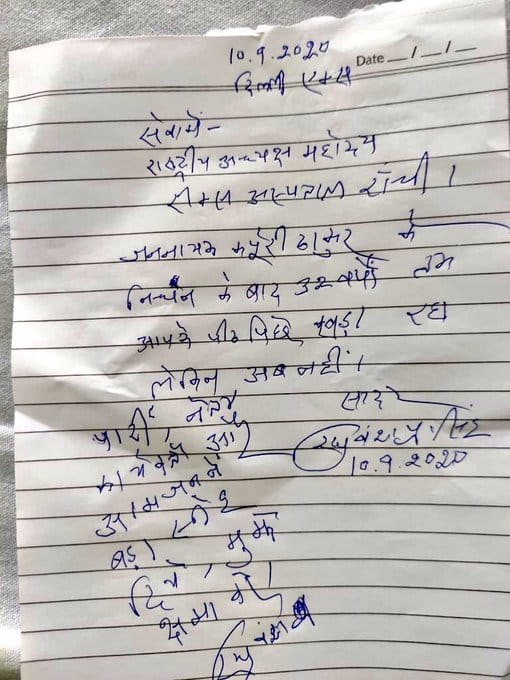 10.9.2020
Date __/__/__
दिल्ली एम्स
सेवामें-
राष्ट्रीय अध्यक्ष महोदय
रीम्स अस्पताल राँची।
जननायक कर्पूरी ठाकुर के
निधन के बाद 32 वर्षों तक
आपके पीठ पीछे खड़ा रहा
लेकिन अब नहीं।
पार्टी, नेता
कार्यकर्ता और
आमजन ने
बड़ा स्नेह
दिया, मुझे
क्षमा करें।
सादर
रघुवंश प्र० सिंह
10.9.2020
रघुवंश